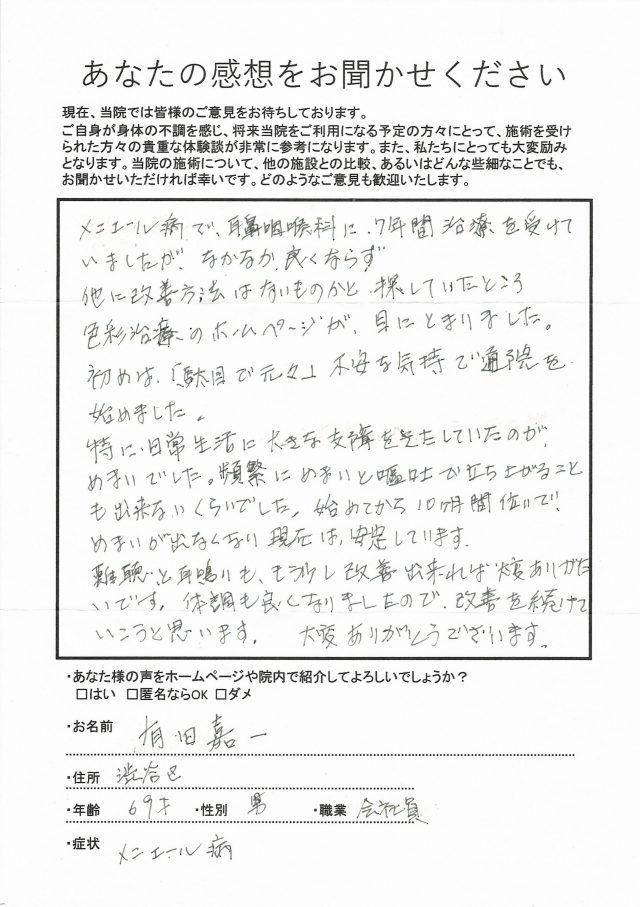 あなたの感想をお聞かせください
現在、当院では皆様のご意見をお待ちしております。
ご自身が身体の不調を感じ、将来当院をご利用になる予定の方々にとって、施術を受け
られた方々の貴重な体験談が非常に参考になります。また、私たちにとっても大変励み
となります。当院の施術について、他の施設との比較、あるいはどんな些細なことでも、
お聞かせいただければ幸いです。どのようなご意見も歓迎いたします。
メニエール病で、耳鼻咽喉科に、7年間治療を受けて
いましたが、なかなか良くならず
他に改善方法はないものかと、探していたところ
色彩治療のホームページが、目にとまりました。
初めは、「駄目で元々」不安な気持で通院を
始めました。
特に、日常生活に大きな支障をきたしていたのが、
めまいでした。頻繁にめまいと嘔吐で立ち上がること
も出来ないくらいでした。始めてから10ヶ月間位いで、
めまいが出なくなり現在は、安定しています。
難聴と耳鳴りも、もう少し改善出来れば大変ありがた
いです。体調も良くなりましたので、改善を続けて
いこうと思います。 大変ありがとうございます。
・あなた様の声をホームページや院内で紹介してよろしいでしょうか？
□はい □匿名ならOK □ダメ
・お名前 有田嘉一
・住所 渋谷区
・年齢 69才 ・性別 男 ・職業 会社員
・症状 メニエール病